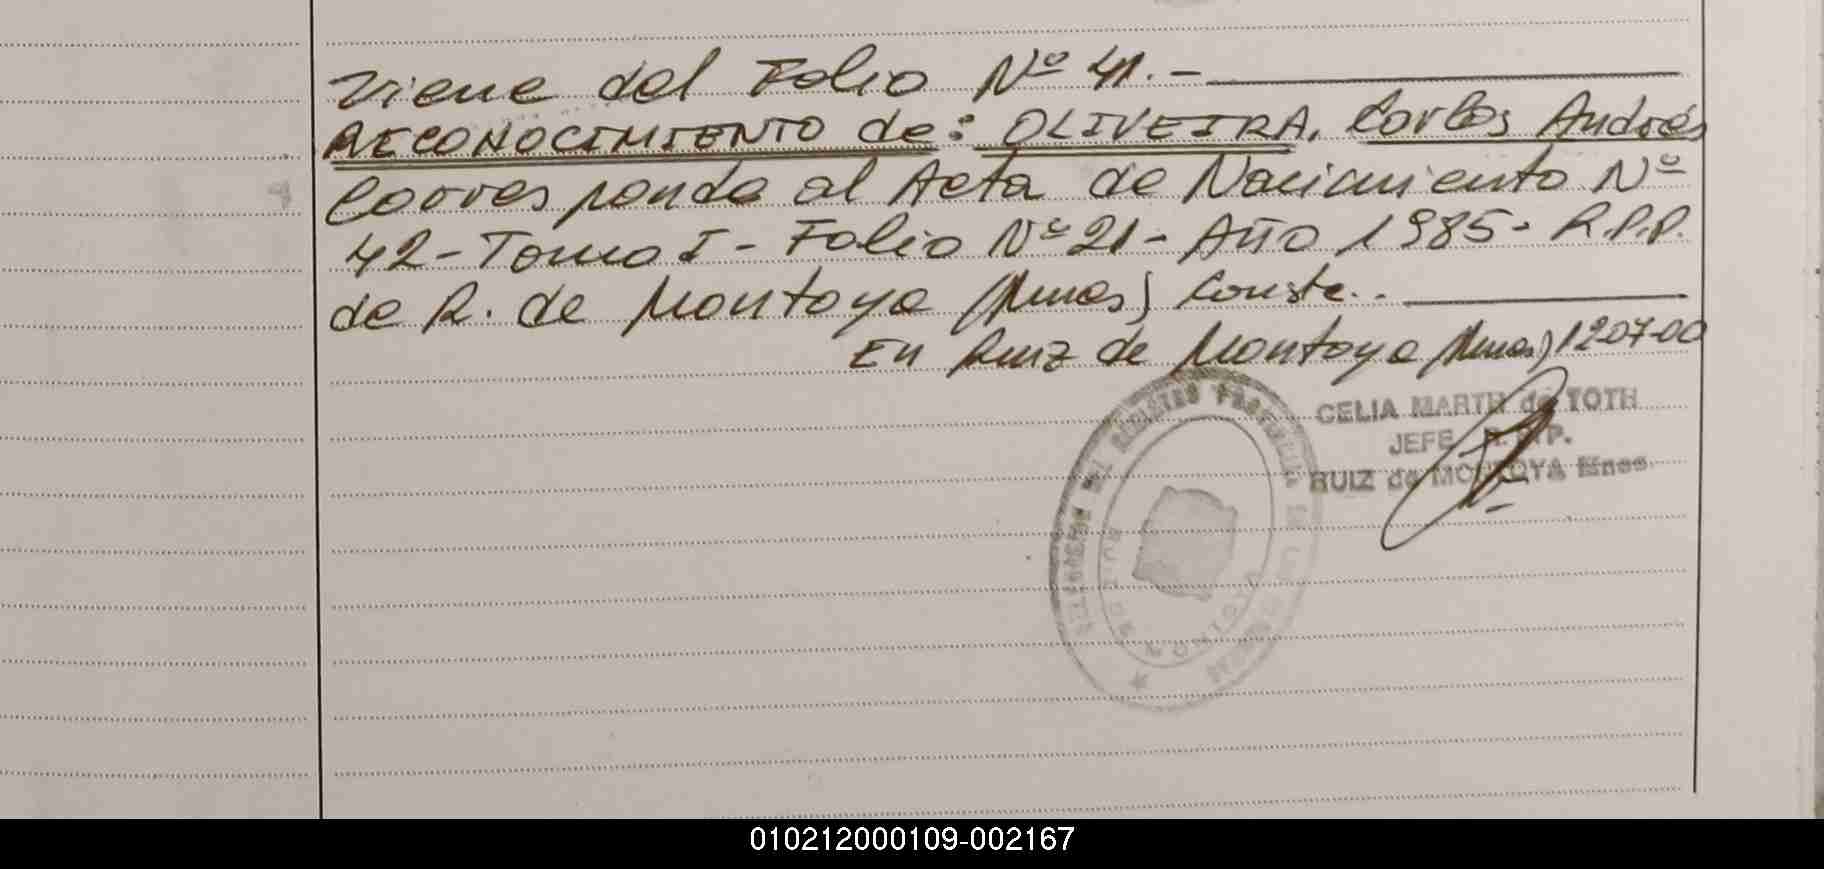 Viene del Folio Nº 41.-
RECONOCIMIENTO de: OLIVEIRA, Carlos Andrés
Corresponde al Acta de Nacimiento Nº
42-Tomo I- Folio Nº 21- Año 1985- R.P.P.
de R. de Montoya (Mnes) Conste.-
En Ruiz de Montoya (Mnes) 12-07-00
CELIA MARTH de TOTH
JEFE R.P.P.
RUIZ de MONTOYA Mnes
010212000109-002167